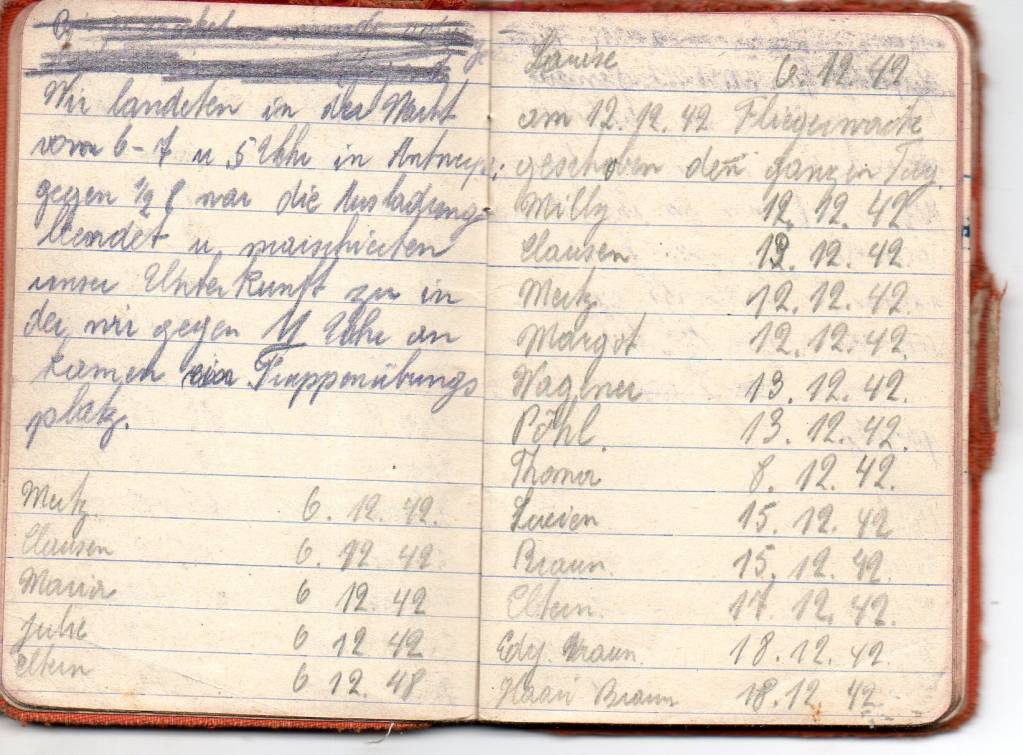 Wir landeten in der Nacht
vom 6-7 u 5 Uhr in Antwerp;
gegen 1/2 8 war die Ausladung
beendet u. marschierten
unser Unterkunft zu in
der wir gegen 11 Uhr an
kamen Truppenübungs
platz.
Metz 6. 12. 42.
Clausen 6 12 42
Maria 6 12. 42
Julie 6 12 42
Eltern 6 12. 48
Louise 6 12 42
am 12. 12. 42 Fliegerwache
geschoben den ganzen Tag.
Milly 12. 12. 42
Clausen 13. 12. 42.
Metz. 12. 12. 42.
Margot 12. 12. 42.
Wagener 13. 12. 42.
Pöhl. 13. 12. 42.
Thoma 8. 12. 42.
Lucien 15. 12. 42
Braun. 15. 12. 42.
Eltern. 17. 12. 42.
Edy. Braun. 18. 12. 42.
Braun 18. 12 42.